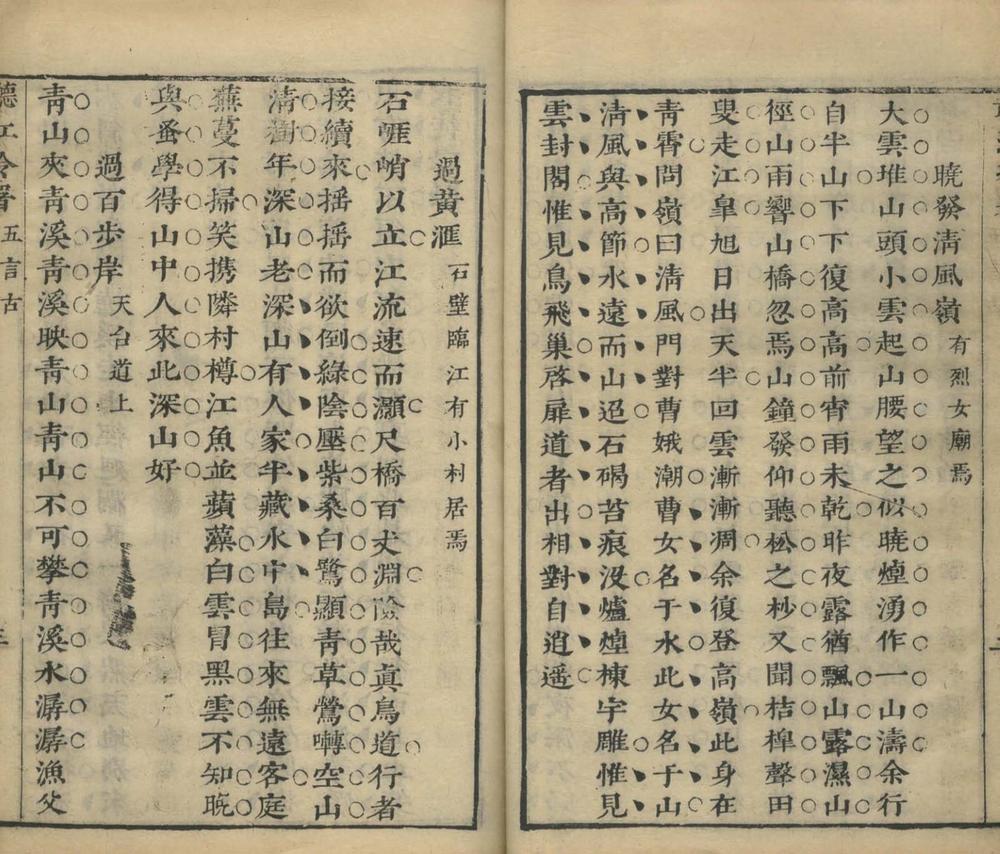 曉發清風嶺 有烈女廟焉
大雲堆山頭小雲起山腰望之似曉煙湧作一山濤余行
自半山下下復高高前宵雨未乾昨夜露猶飄山露濕山
徑山雨響山橋忽焉山鐘發仰聽松之杪又聞桔槔聲田
叟走江皐旭日出天半回雲漸漸凋余復登高嶺此身在
青霄問嶺曰清風門對曹娥潮曹女名于水此女名于山
清風與高節水遠而山迢石碣苔痕沒爐煙棟宇雕惟見
雲封閣惟見鳥飛巢啓扉道者出相對自逍遥
過黃滙 石壁臨江有小村居焉
石啀峭以立江流速而灝尺橋百丈淵險哉眞鳥道行者
接續來揺揺而欲倒綠陰壓柴桑白鷺顯青草鶯囀空山
清樹年深山老深山有人家半藏水中島往來無遠客庭
蕪蔓不掃笑携隣村樽江魚並蘋藻白雲冒黑雲不知晩
與蚤學得山中人來此深山好
過百步岸 天台道上
青山夾青溪青溪映青山青山不可攀青溪水潺潺漁父
五言古